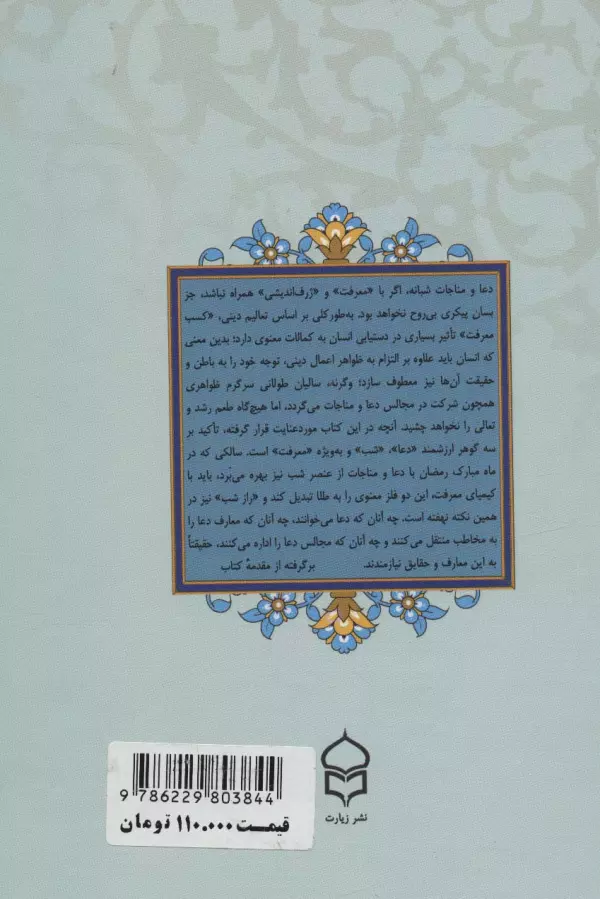 دعا و مناجات شبانه، اگر با «معرفت» و «ژرف‌اندیشی» همراه نباشد، جز
بسان پیکری بی‌روح نخواهد بود. به‌طورکلی بر اساس تعالیم دینی، «کسب
معرفت» تأثیر بسیاری در دستیابی انسان به کمالات معنوی دارد؛ بدین معنی
که انسان باید علاوه بر التزام به ظواهر اعمال دینی، توجه خود را به باطن و
حقیقت آن‌ها نیز معطوف سازد؛ وگرنه، سالیان طولانی سرگرم ظواهری
همچون شرکت در مجالس دعا و مناجات می‌گردد، اما هیچ‌گاه طعم رشد و
تعالی را نخواهد چشید. آنچه در این کتاب موردعنایت قرار گرفته، تأکید بر
سه گوهر ارزشمند «دعا»، «شب» و به‌ویژه «معرفت» است. سالکی که در
ماه مبارک رمضان با دعا و مناجات از عنصر شب نیز بهره می‌بُرد، باید با
کیمیای معرفت، این دو فلز معنوی را به طلا تبدیل کند و «راز شب» نیز در
همین نکته نهفته است. چه آنان که دعا می‌خوانند، چه آنان که معارف دعا را
به مخاطب منتقل می‌کنند و چه آنان که مجالس دعا را اداره می‌کنند، حقیقتاً
به این معارف و حقایق نیازمندند. برگرفته از مقدمهٔ کتاب
نشر زیارت
9 786229 803844
قیمت ۱۱۰.۰۰۰ تومان